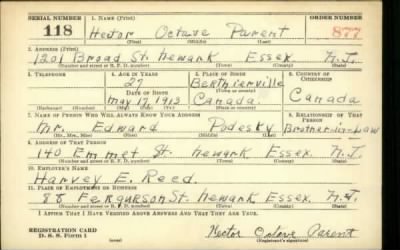 SERIAL NUMBER 1. NAME (Print) ORDER NUMBER
118 Hector Octave Parent 877
(First) (Middle) (Last)
2. ADDRESS (Print)
1201 Broad St. Newark Essex N.J.
(Number and street or R. F. D. number) (Town) (County) (State)
3. TELEPHONE 4. AGE IN YEARS 5. PLACE OF BIRTH 6. COUNTRY OF CITIZENSHIP
27 Berthierville
DATE OF BIRTH (Town or county)
May 17, 1913 Canada. Canada
(Exchange) (Number) (Mo.) (Day) (Yr.) (State or country)
7. NAME OF PERSON WHO WILL ALWAYS KNOW YOUR ADDRESS 8. RELATIONSHIP OF THAT PERSON
Mr. Edward Podesky Brother-in-Law
(Mr., Mrs., Miss) (First) (Middle) (Last)
9. ADDRESS OF THAT PERSON
140 Emmet St. Newark Essex. N.J.
(Number and street or R. F. D. number) (Town) (County) (State)
10. EMPLOYER'S NAME
Harvey E. Reed.
11. PLACE OF EMPLOYMENT OR BUSINESS
88 Fergurson St. Newark Essex N.J.
(Number and street or R. F. D. number) (Town) (County) (State)
I AFFIRM THAT I HAVE VERIFIED ABOVE ANSWERS AND THAT THEY ARE TRUE.
REGISTRATION CARD
D. S. S. Form 1 (over) Hector Octave Parent
(Registrant's signature)